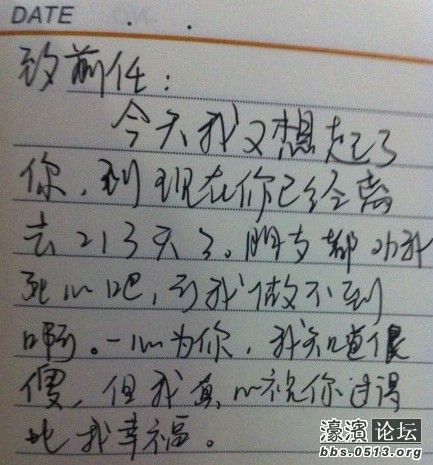 DATE . .
致前任:
今天我又想起了
你,到现在你已经离
去213天了。朋友都劝我
死心吧,可我做不到
啊。一心为你,我知道很
傻,但我真心祝你过得
比我幸福。
濠滨论坛
bbs.0513.org